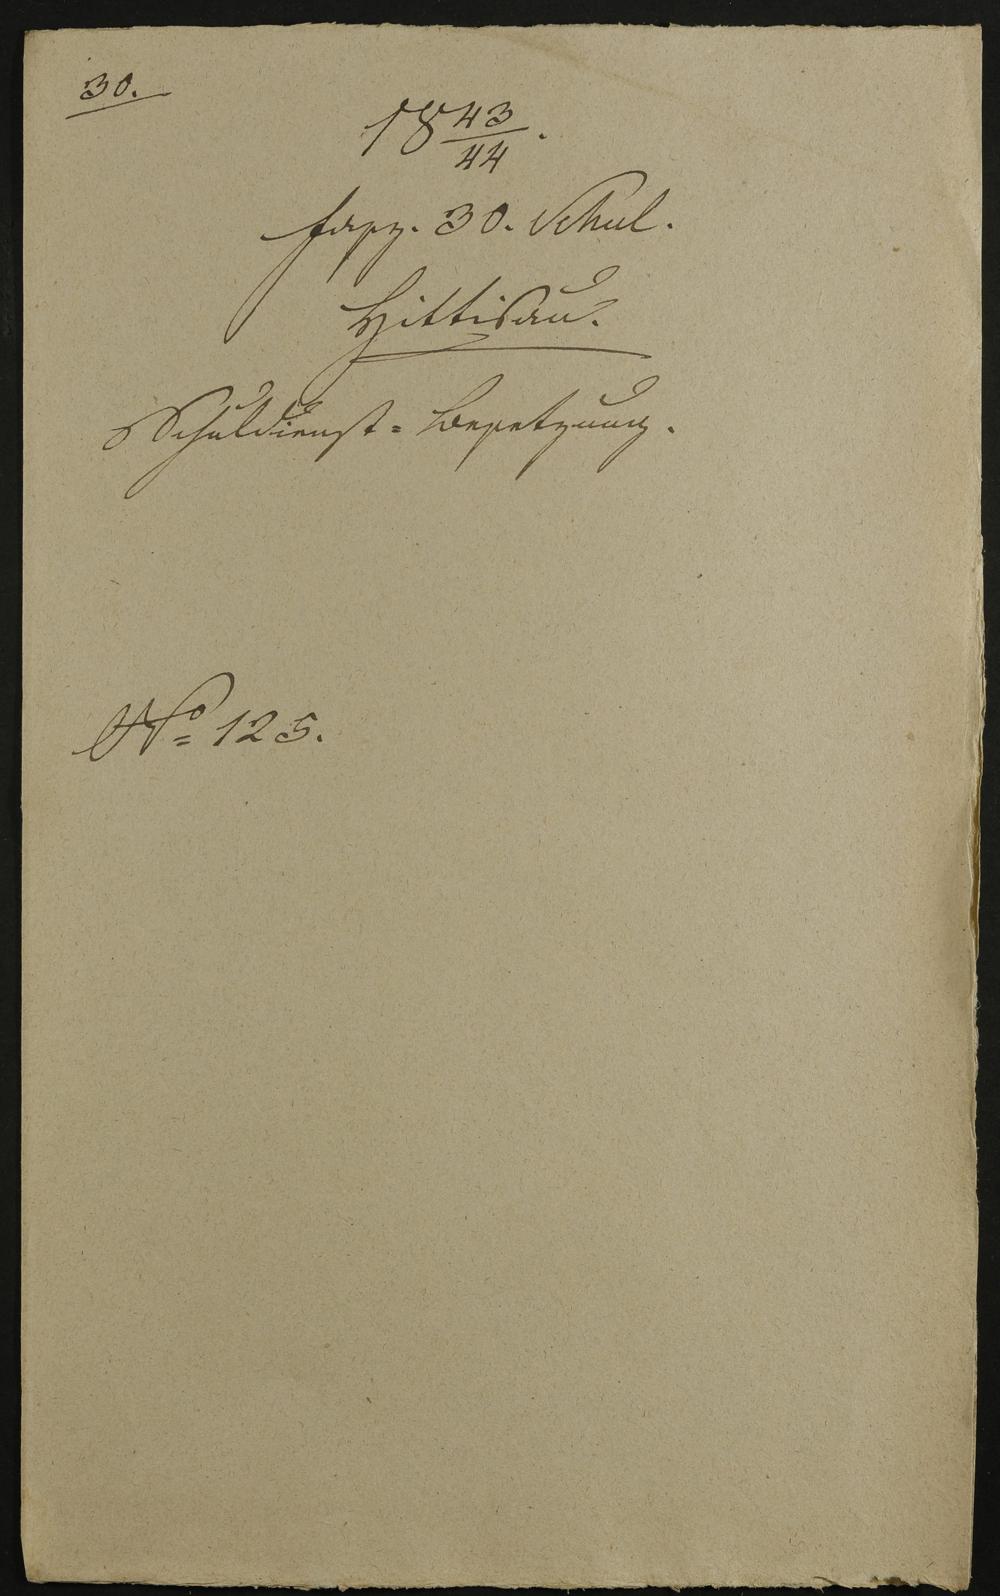 30.
18 43/44.
Fasz. 30. Schul.
Hittisau.
Schuldienst=Besetzung.
No 125.